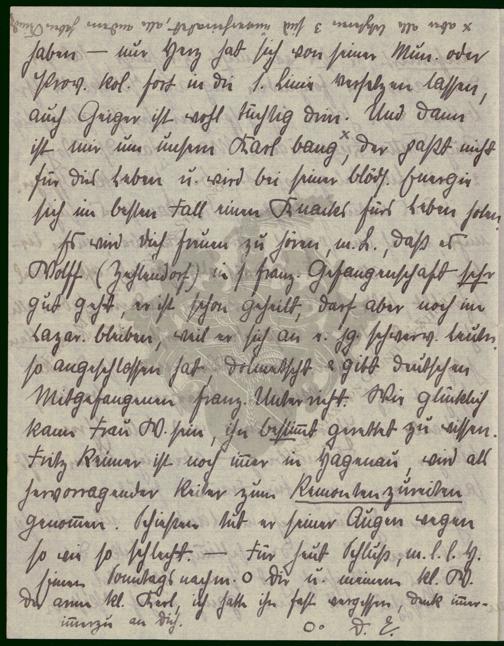 x aber alle 3 sind
haben — nur Herz hat sich von seiner Mun. oder
Prov. Kol. fort in die 1. Linie versetzen lassen,
auch Geiger ist wohl tüchtig drin. Und dann
ist mir um unsern Karl bang x, der paßt nicht
für dies Leben u. wird bei seiner blöds. Energie
sich im besten Fall einen Knacks fürs Leben holen.
Es wird dich freuen zu hören, m. L., daß es
Wolff (Zehlendorf) in franz. Gefangenschaft sehr
gut geht, er ist schon geheilt, darf aber noch im
Lazar. bleiben, weil er sich an e. jg. schwerv. Leutn.
so angeschlossen hat, dolmetscht & gibt deutschen
Mitgefangenen franz. Unterricht. Wie glücklich
kann Frau W. sein, ihn bestimmt gerettet zu wissen.
Fritz Reimer ist noch im̅er in Hagenau, wird als
hervorragender Reiter zum Remonten zureiten
genom̅en. Schießen tut er seiner Augen wegen
so wie so schlecht. — Für heut Schluß, m. l. l. H.
einen Sonntagsnachm. O dir u. meinem kl. W.
Der arme kl. Kerl, ich hatte ihn fast vergessen, denk im̅er-
im̅erzu an dich.
Oo D. E.